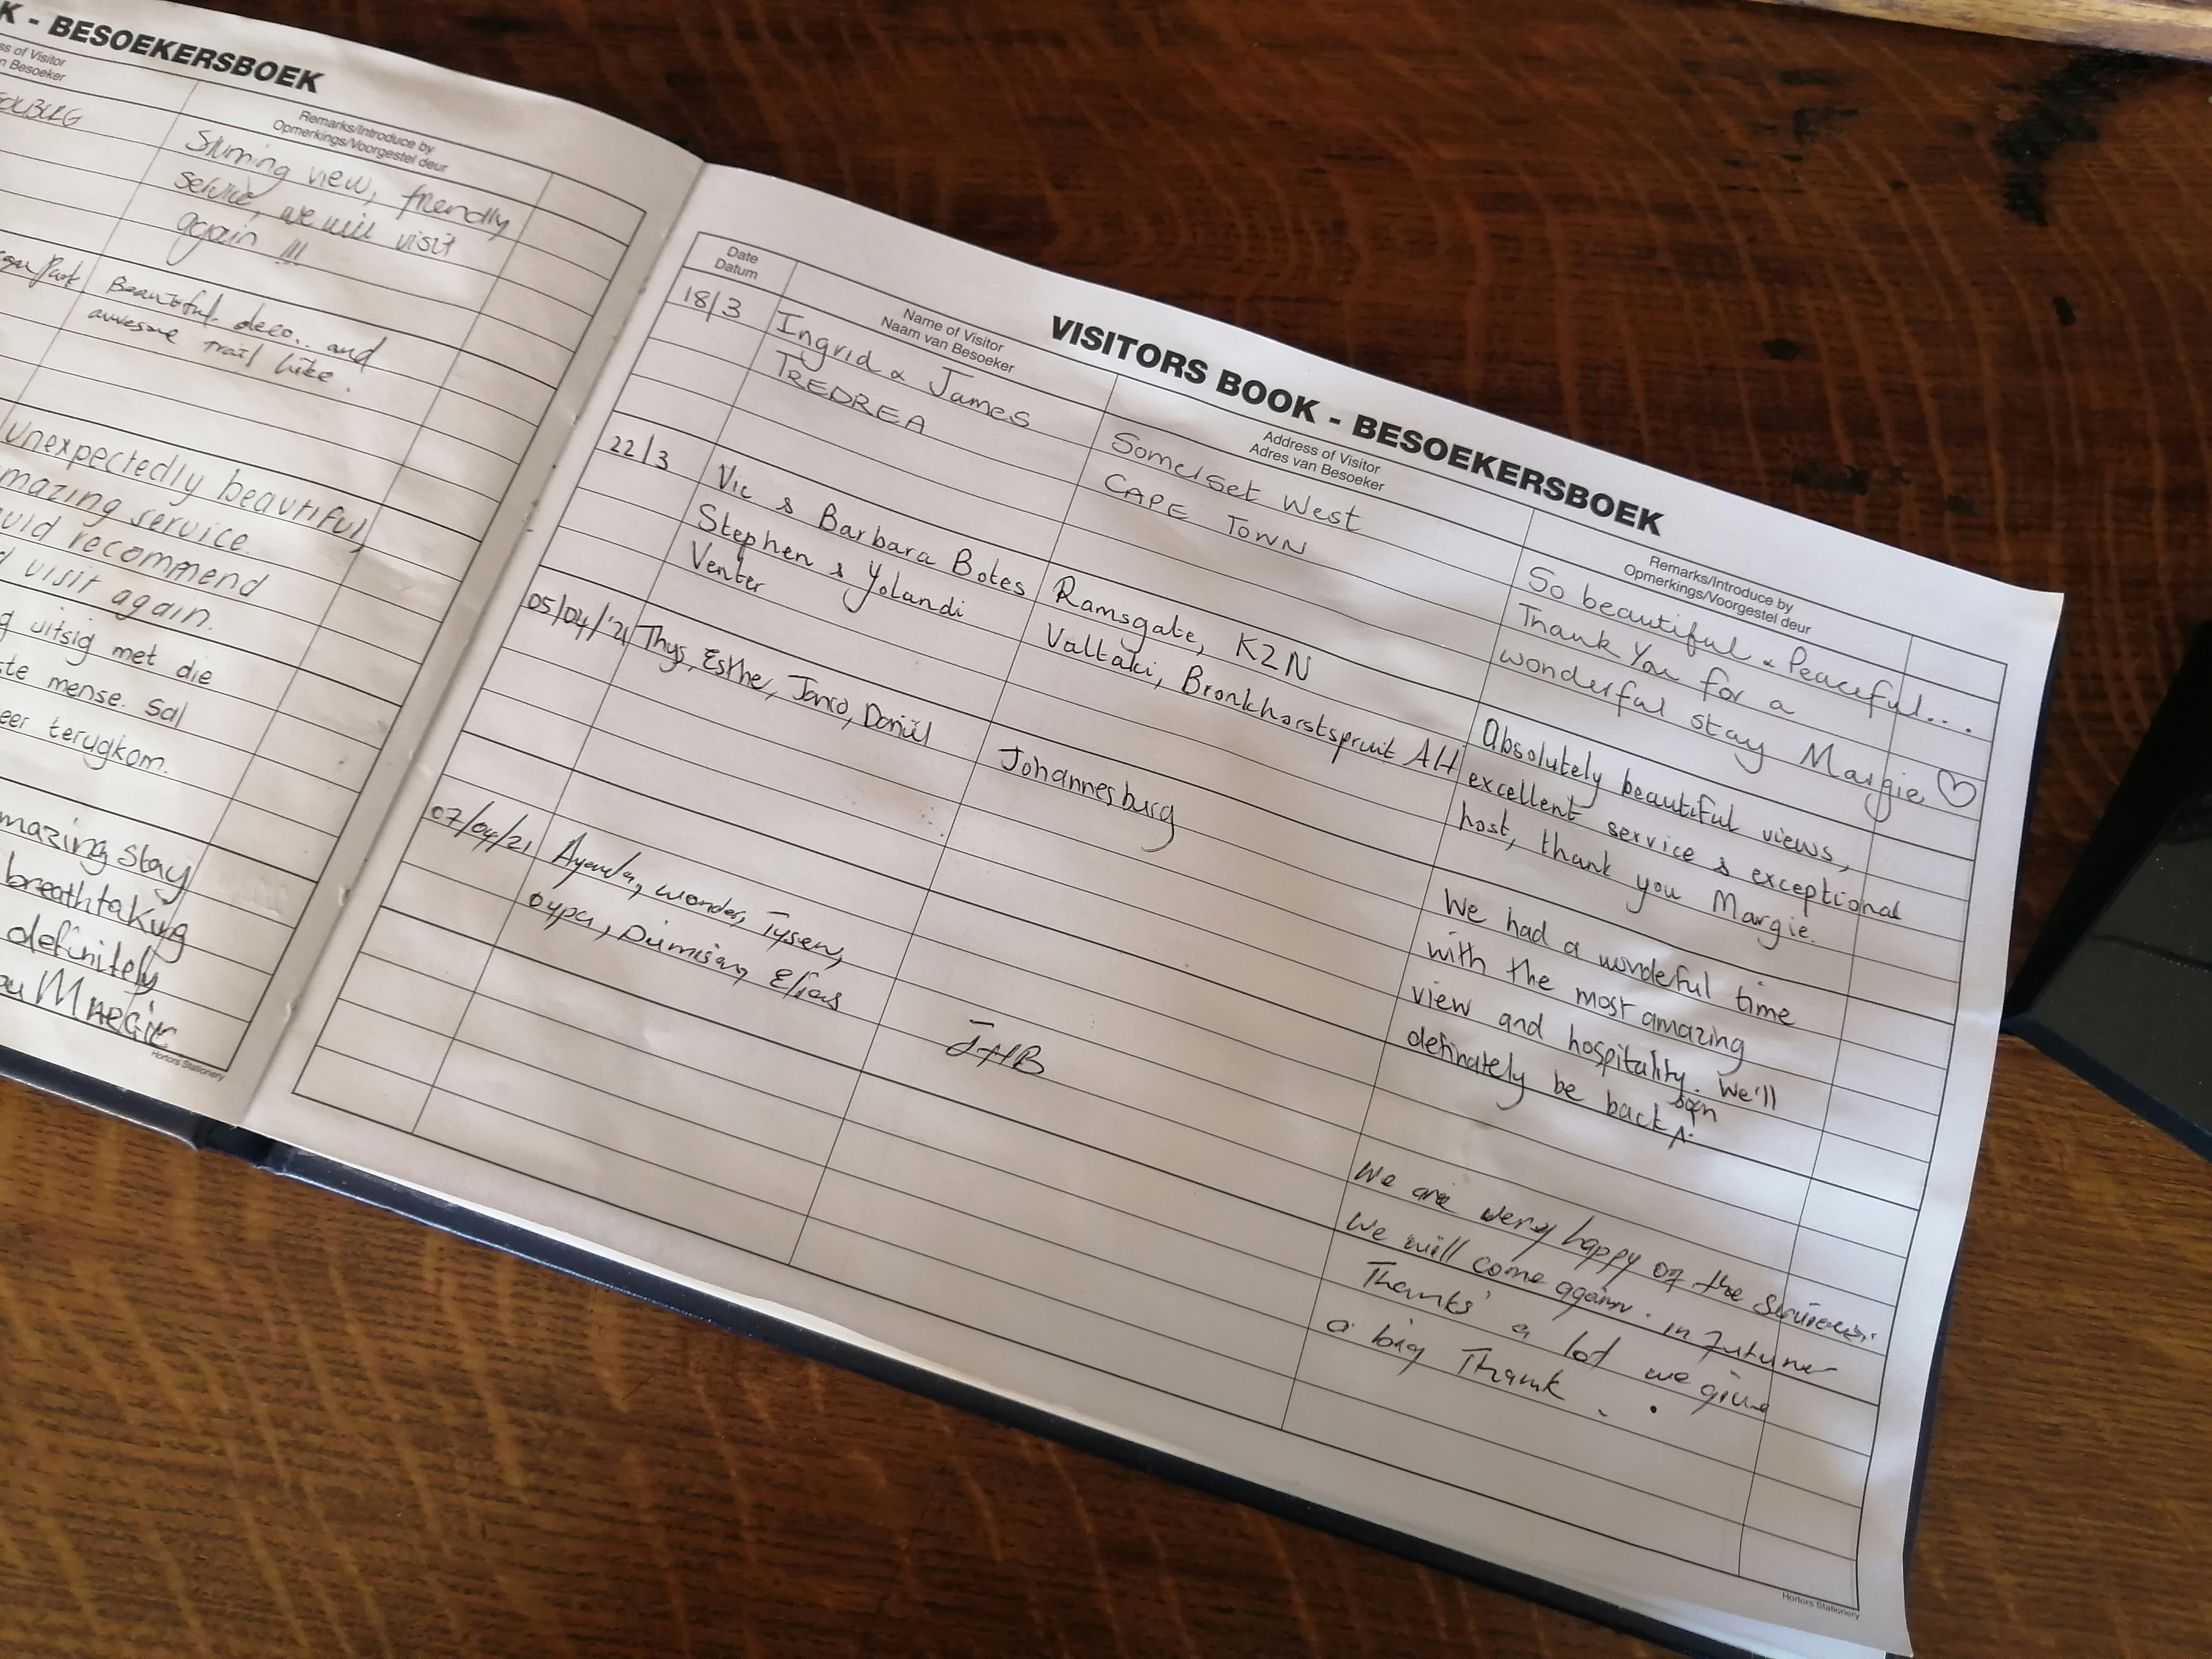 K - BESOEKERSBOEK
ss of Visitor
n Besoeker
Remarks/Introduce by
Opmerkings/Voorgestel deur
Stuning view, friendly
service, we will visit
again !!!
Park
Beautiful deco.. and
awesome trail hike.
Unexpectedly beautiful,
mazing service.
uld recommend
d visit again.
g uitsig met die
ste mense. Sal
eer terugkom.
mazing stay
breathtaking
definitely
ou Margie
Hortors Stationery
VISITORS BOOK - BESOEKERSBOEK
Date
Datum
Name of Visitor
Naam van Besoeker
Address of Visitor
Adres van Besoeker
Remarks/Introduce by
Opmerkings/Voorgestel deur
18/3
Ingrid & James
TREDREA
Somerset West
CAPE TOWN
So beautiful & Peaceful....
Thank You for a
wonderful stay Margie ♡
22/3
Vic & Barbara Botes
Stephen & Yolandi
Venter
Ramsgate, KZN
Valtaki, Bronkhorstspruit AH
Absolutely beautiful views,
excellent service & exceptional
host, thank you Margie.
05/04/'21
Thys, Esthe, Janco, Daniël
Johannesburg
We had a wondeful time
with the most amazing
view and hospitality. We'll
definately be back soon.
07/04/21
Ayanda, wonder, Tysen,
Elias
JHB
We are very happy of the
We will come again. in future
Thanks' a lot we give
a big Thank.
Hortors Stationery